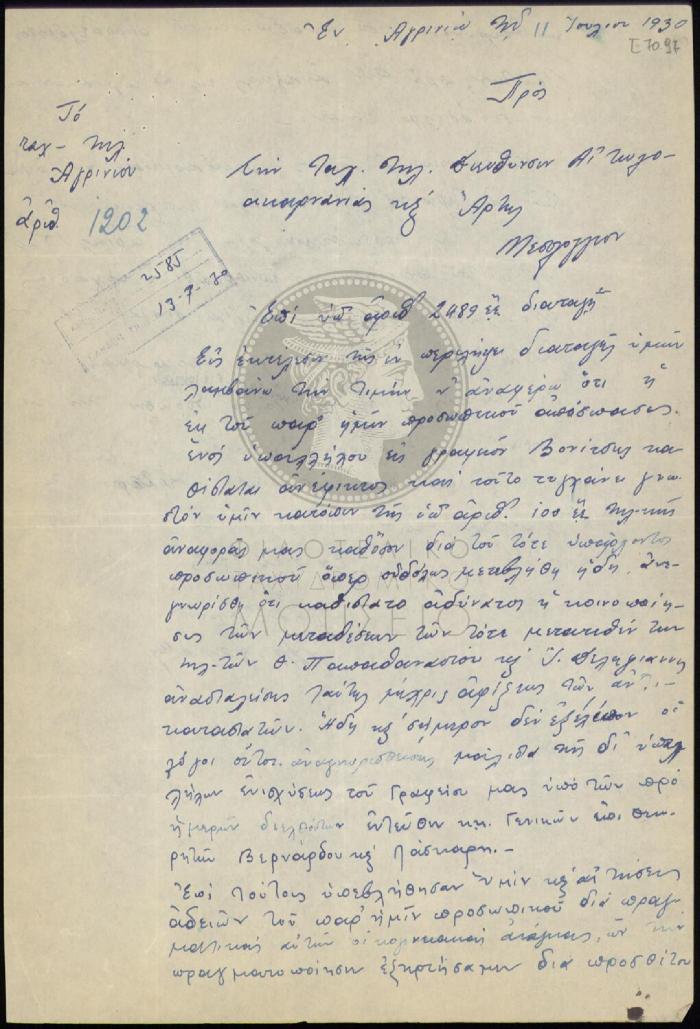 Ἐν Ἀγρινίῳ τῇ 11 Ἰουλίου 1930
Πρός
Τό
ταχ-τηλ.
Ἀγρινίου
ἀριθ. 1202
τὴν Ταχ. Τηλ. Διεύθυνσιν Αἰτωλο-
ακαρνανίας κ Ἄρτης
Μεσολόγγιον
2585
13-7-30
Ἐπί ὑπ' ἀριθ 2489 διαταγῆς
Εἰς ἐκτέλεσιν τῆς ἐν περιλήψει διαταγῆς ὑμῶν
λαμβάνω τὴν τιμήν ν' ἀναφέρω ὅτι ἡ
ἐκ τοῦ παρ' ἡμῖν προσωπικοῦ ἀπόσπασις
ἑνός ὑπαλλήλου εἰς γραφεῖον Βονίτσης κα-
θίσταται ἀνέφικτος καί τοῦτο τυγχάνει γνω-
στόν ὑμῖν κατόπιν τῆς ὑπ' ἀριθ. τηλ-κῆς
ἀναφορᾶς μας καθόσον διά τοῦ τότε ὑπάρχοντος
προσωπικοῦ ὅπερ οὐδόλως μετεβλήθη ἤδη, ἀνε-
γνωρίσθη ὅτι καθίστατο ἀδύνατος ἡ κοινοποίη-
σις τῶν μεταθέσεων τῶν τότε μετατεθέντων
τηλ-τῶν Θ. Παπαθανασίου κ
ἀνασταλείσης ταύτης μέχρις ἀφίξεως τῶν ἀντι-
καταστατῶν. Ἤδη κ σήμερον δέν ἐξέλιπον οἱ
λόγοι οὗτοι ἀναγνωρισθείσης μάλιστα τῆς δι' ὑπαλ-
λήλων ἐνισχύσεως τοῦ Γραφείου μας ὑπό τῶν πρό
ἡμερῶν διελθόντων ἐντεῦθεν κ.κ. Γενικῶν ἐπιθεω-
ρητῶν Βερνάρδου κ Πάσχαρη.-
Ἐπί τούτοις ὑπεβλήθησαν ὑμῖν κ αἰτήσεις
ἀδειῶν τοῦ παρ' ἡμῖν προσωπικοῦ διά πραγ-
ματικάς αὐτῶν οἰκογενειακάς ἀνάγκας, ὧν τήν
πραγματοποίησιν ἐξηρτήσαμεν διά προσθέτου